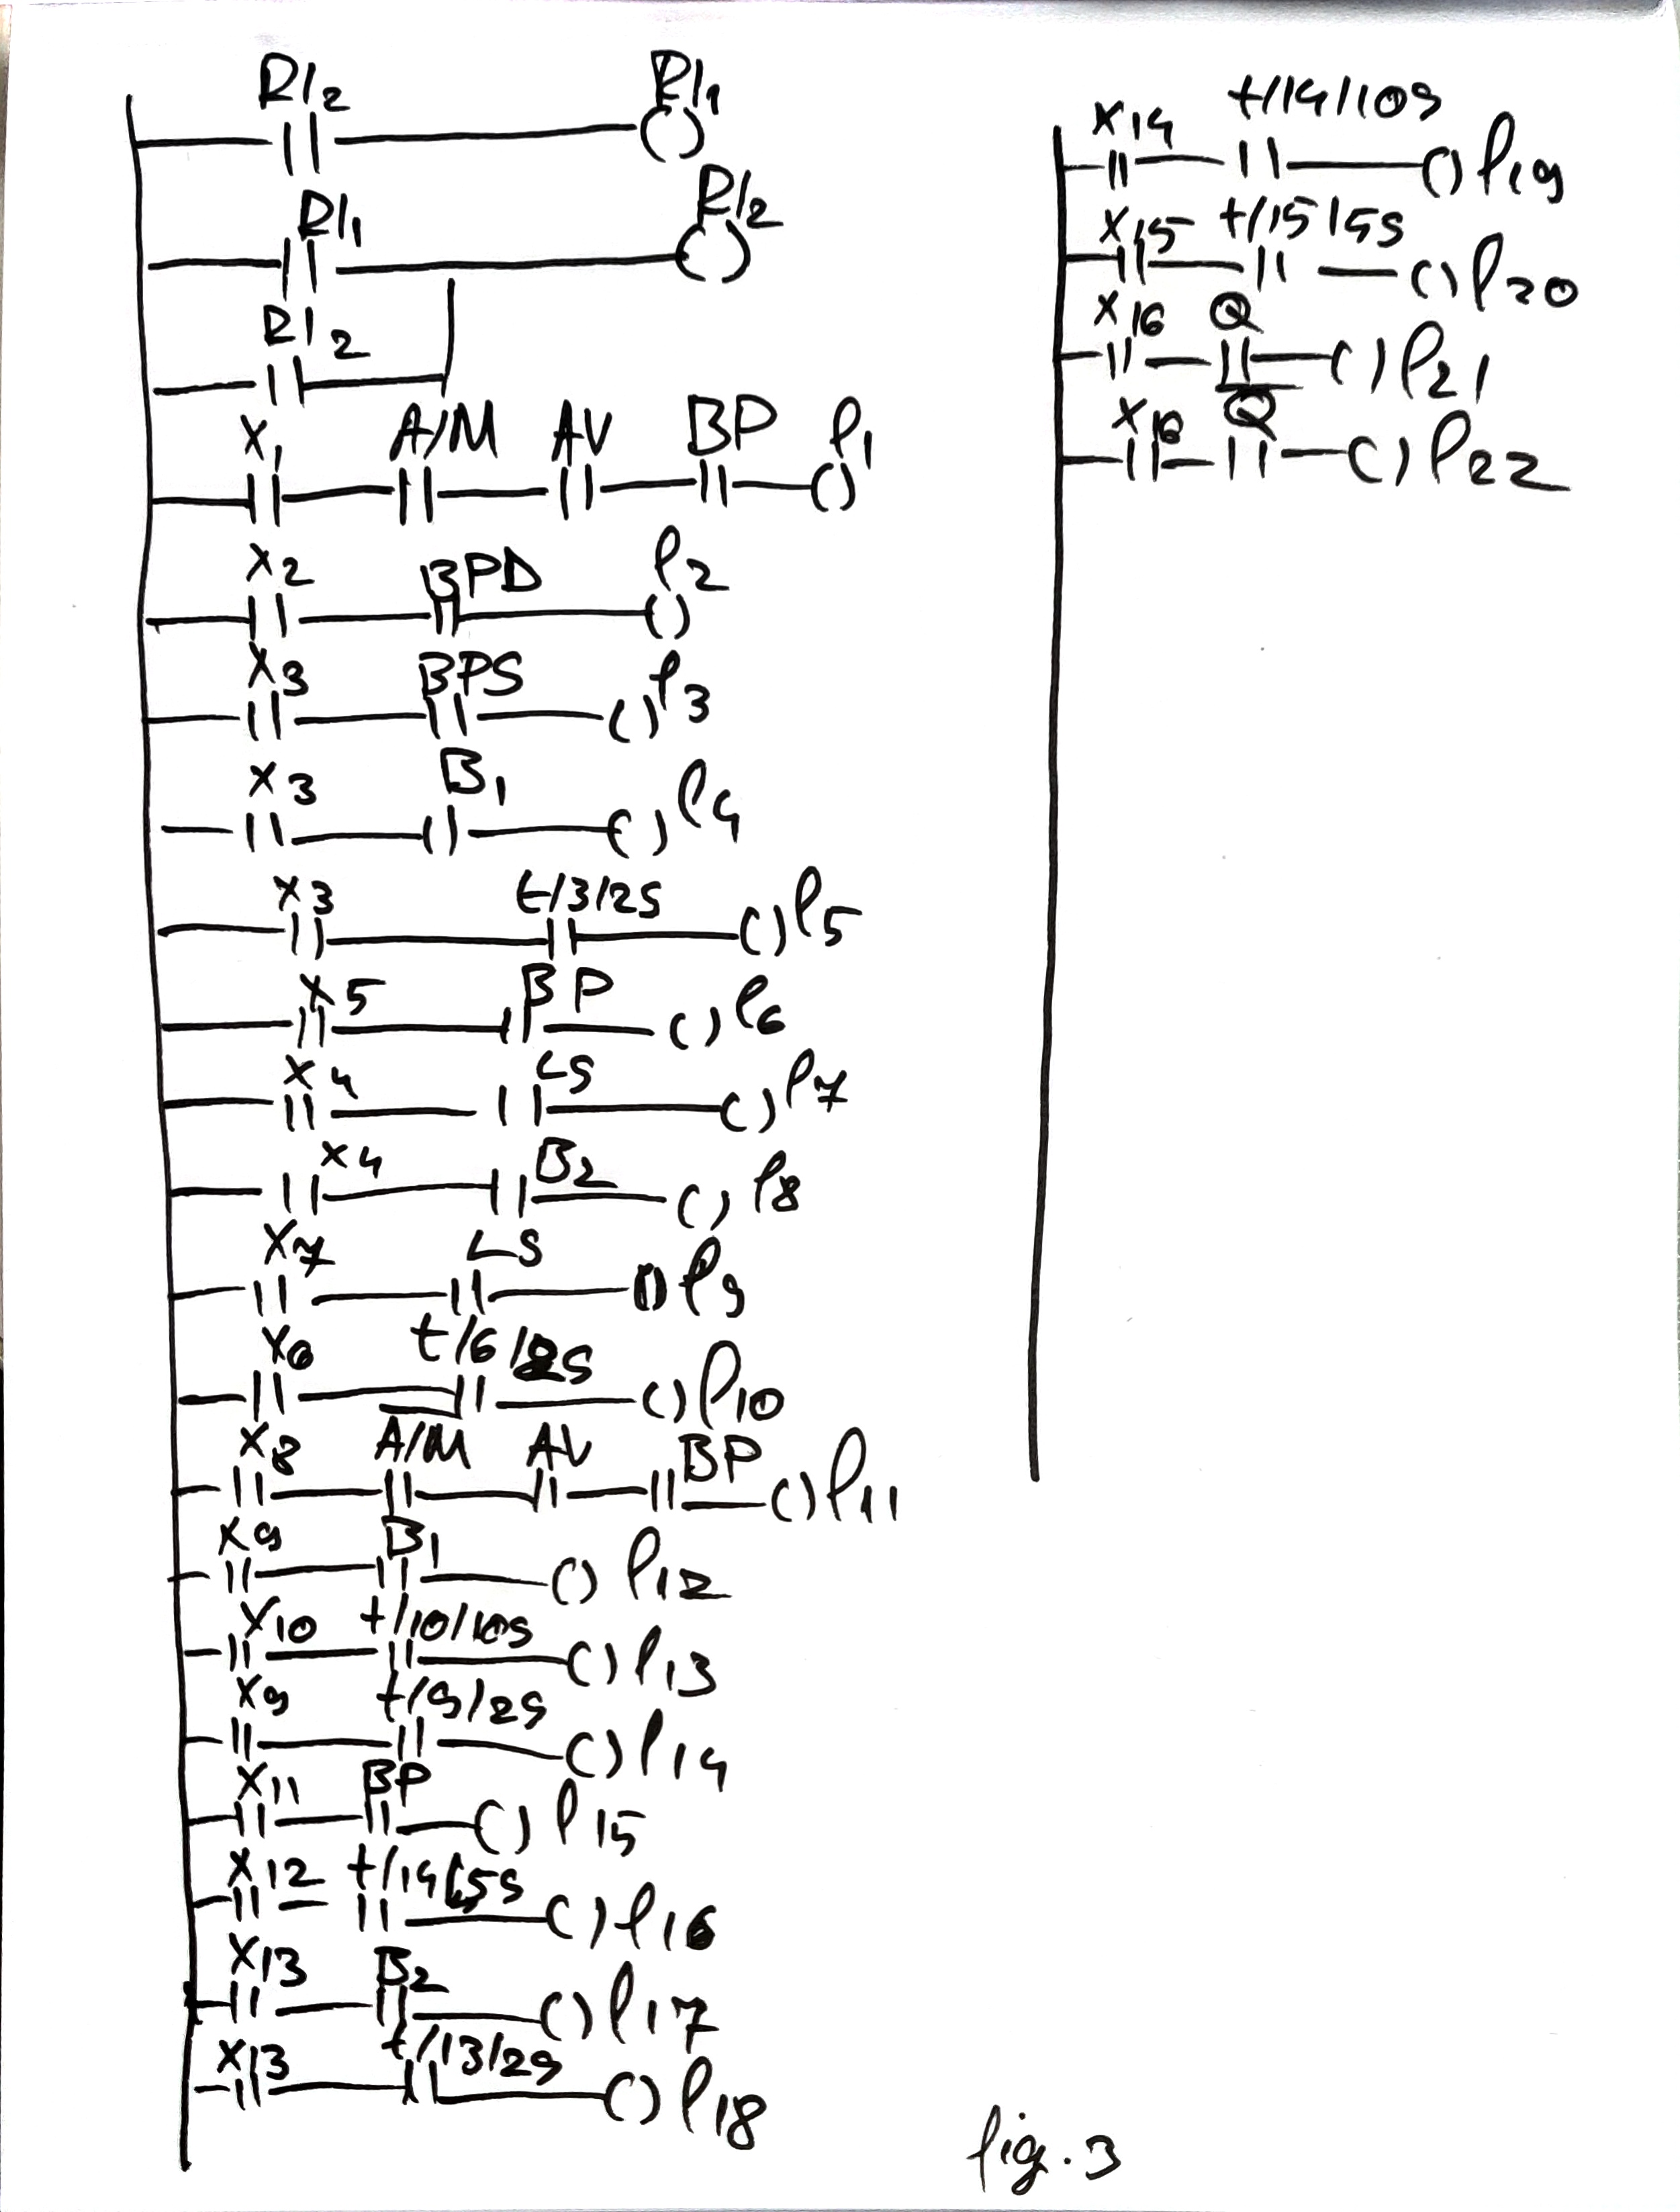 RI2 RI1
RI1 RI2
RI2
X1 A/M AV BP f1
X2 BPD f2
X3 BPS f3
X3 B1 f4
X3 t/3/2s f5
X5 BP f6
X4 LS f7
X4 B2 f8
X7 LS f9
X6 t/6/2s f10
X8 A/M AV BP f11
X9 B1 f12
X10 t/10/10s f13
X9 t/9/2s f14
X11 BP f15
X12 t/14/5s f16
X13 B2 f17
X13 t/13/2s f18
X14 t/14/10s f19
X15 t/15/5s f20
X16 Q f21
X16 Q f22
fig.3